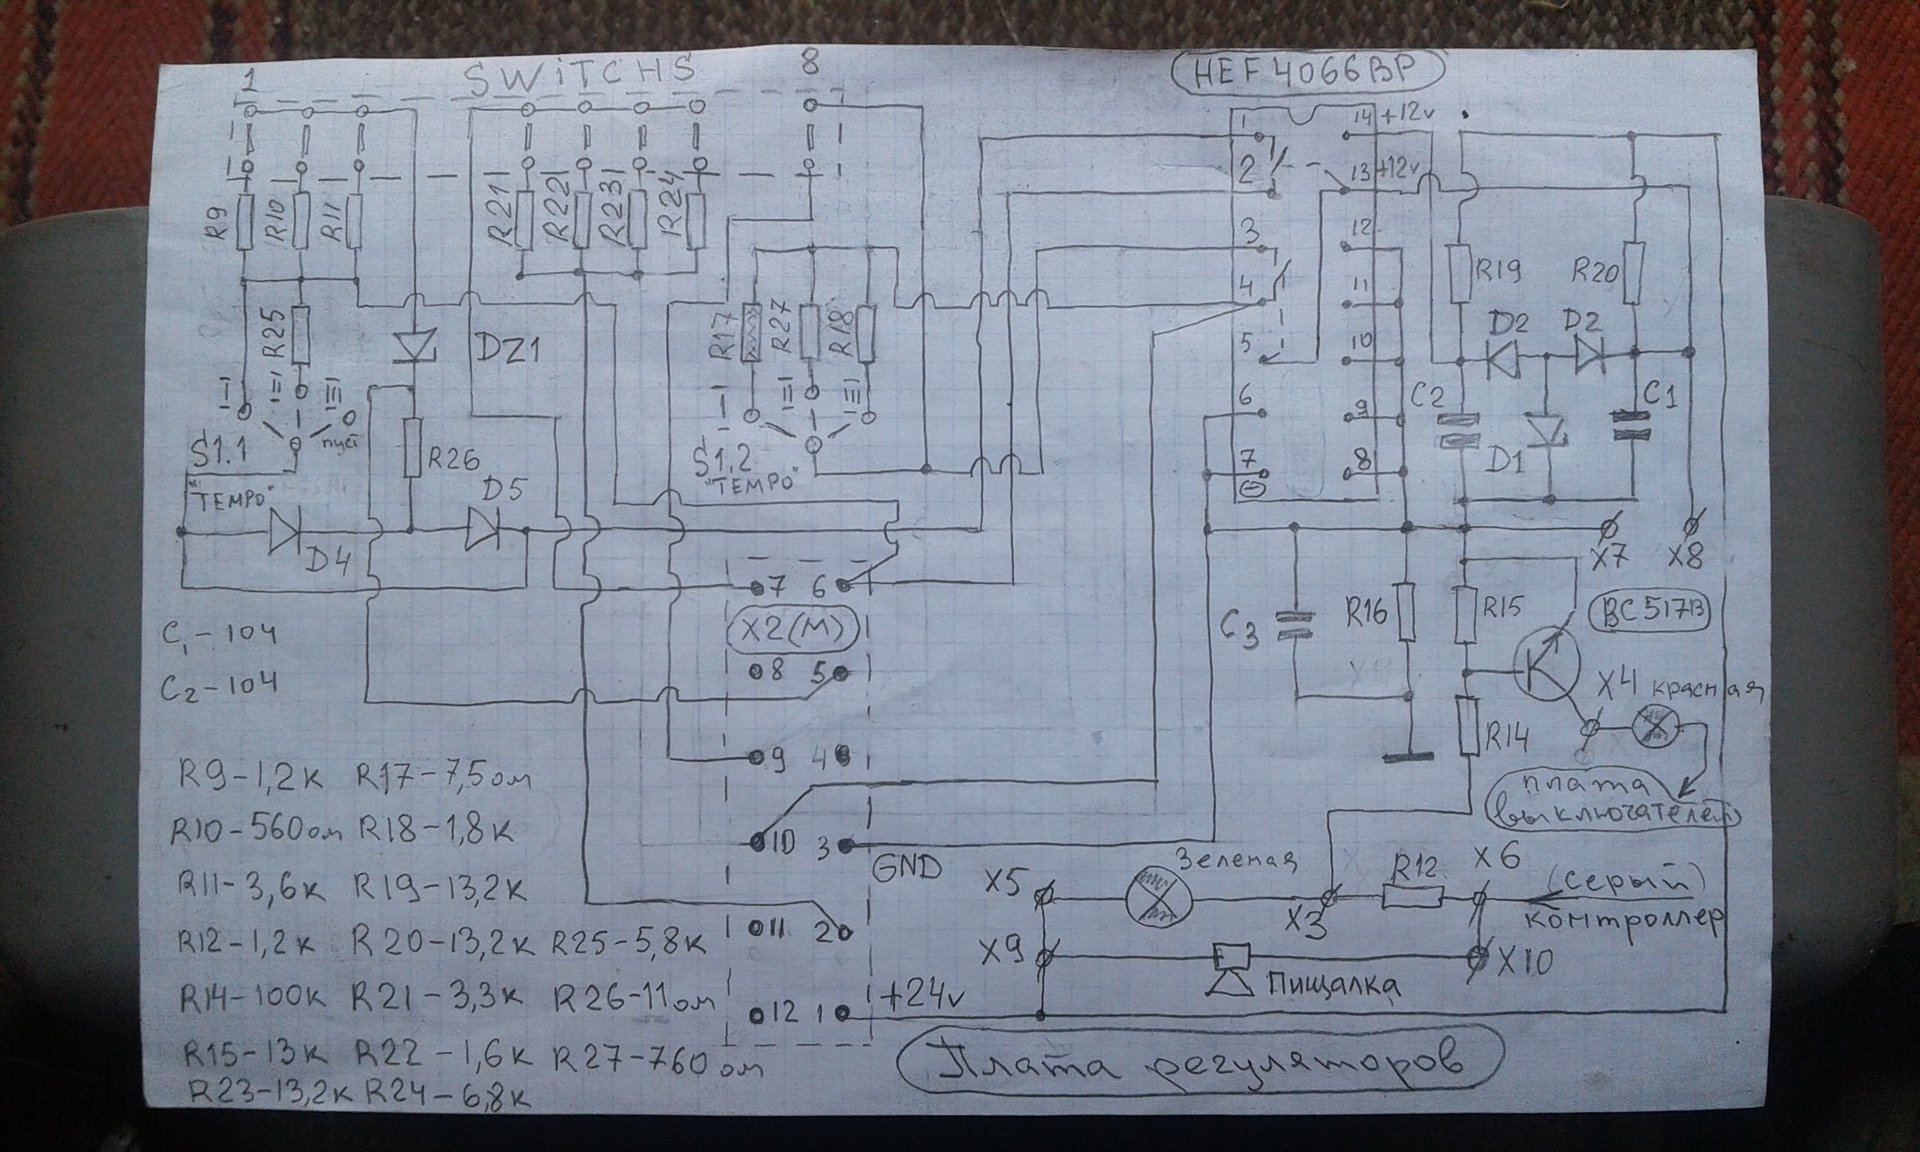 1 SWiTCHS 8
HEF4066BP
R9
R10
R11
R21
R22
R23
R24
R25
R17
R27
R18
DZ1
S1.1
"TEMPO"
пуст
R26
D5
D4
S1.2
"TEMPO"
1 14 +12v
2 13 +12v
3 12
4 11
5 10
6 9
7 8
R19
R20
D2 D2
C2
C1
D1
X7 X8
BC517B
R15
R16
C3
R14
X4 красная
плата
выключателей
7 6
X2(M)
8 5
9 4
10 3
GND
11 2
12 1 +24v
X5
Зеленая
X3
R12
X6
(серый)
контроллер
X9
Пищалка
X10
Плата регуляторов
C1-104
C2-104
R9-1,2к R17-7,5ом
R10-560ом R18-1,8к
R11-3,6к R19-13,2к
R12-1,2к R20-13,2к R25-5,8к
R14-100к R21-3,3к R26-11ом
R15-13к R22-1,6к R27-760ом
R23-13,2к R24-6,8к